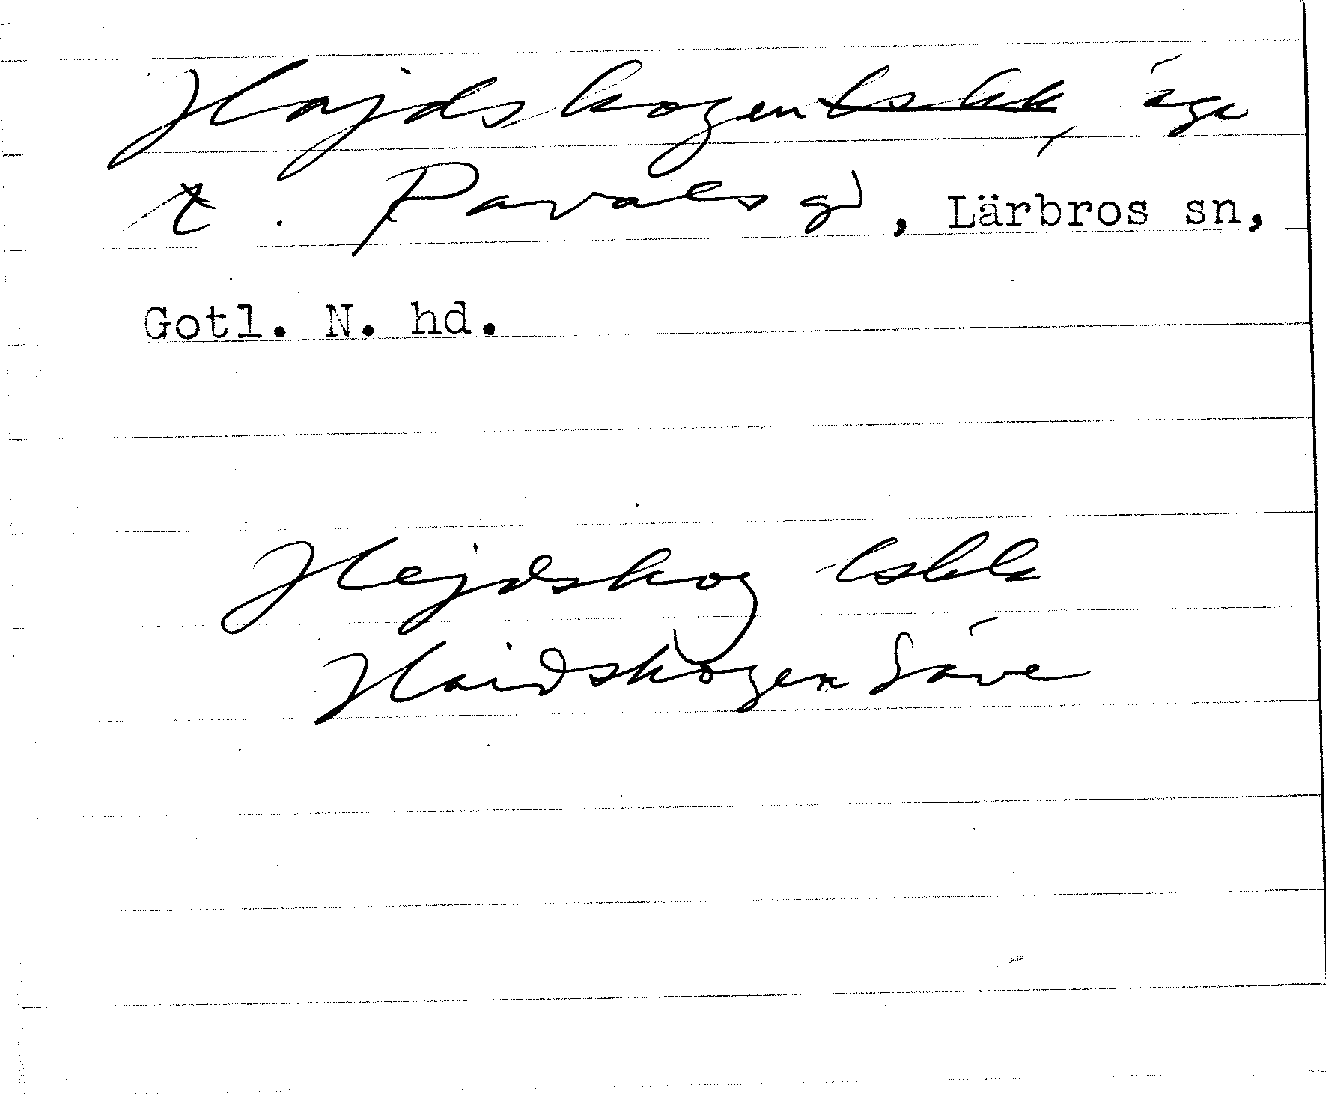 Hajdskogen ~~lskk~~, äga
t. Pavals gd, Lärbros sn,
Gotl. N. hd.
Hejdskog lskk
Haidskogen Säve